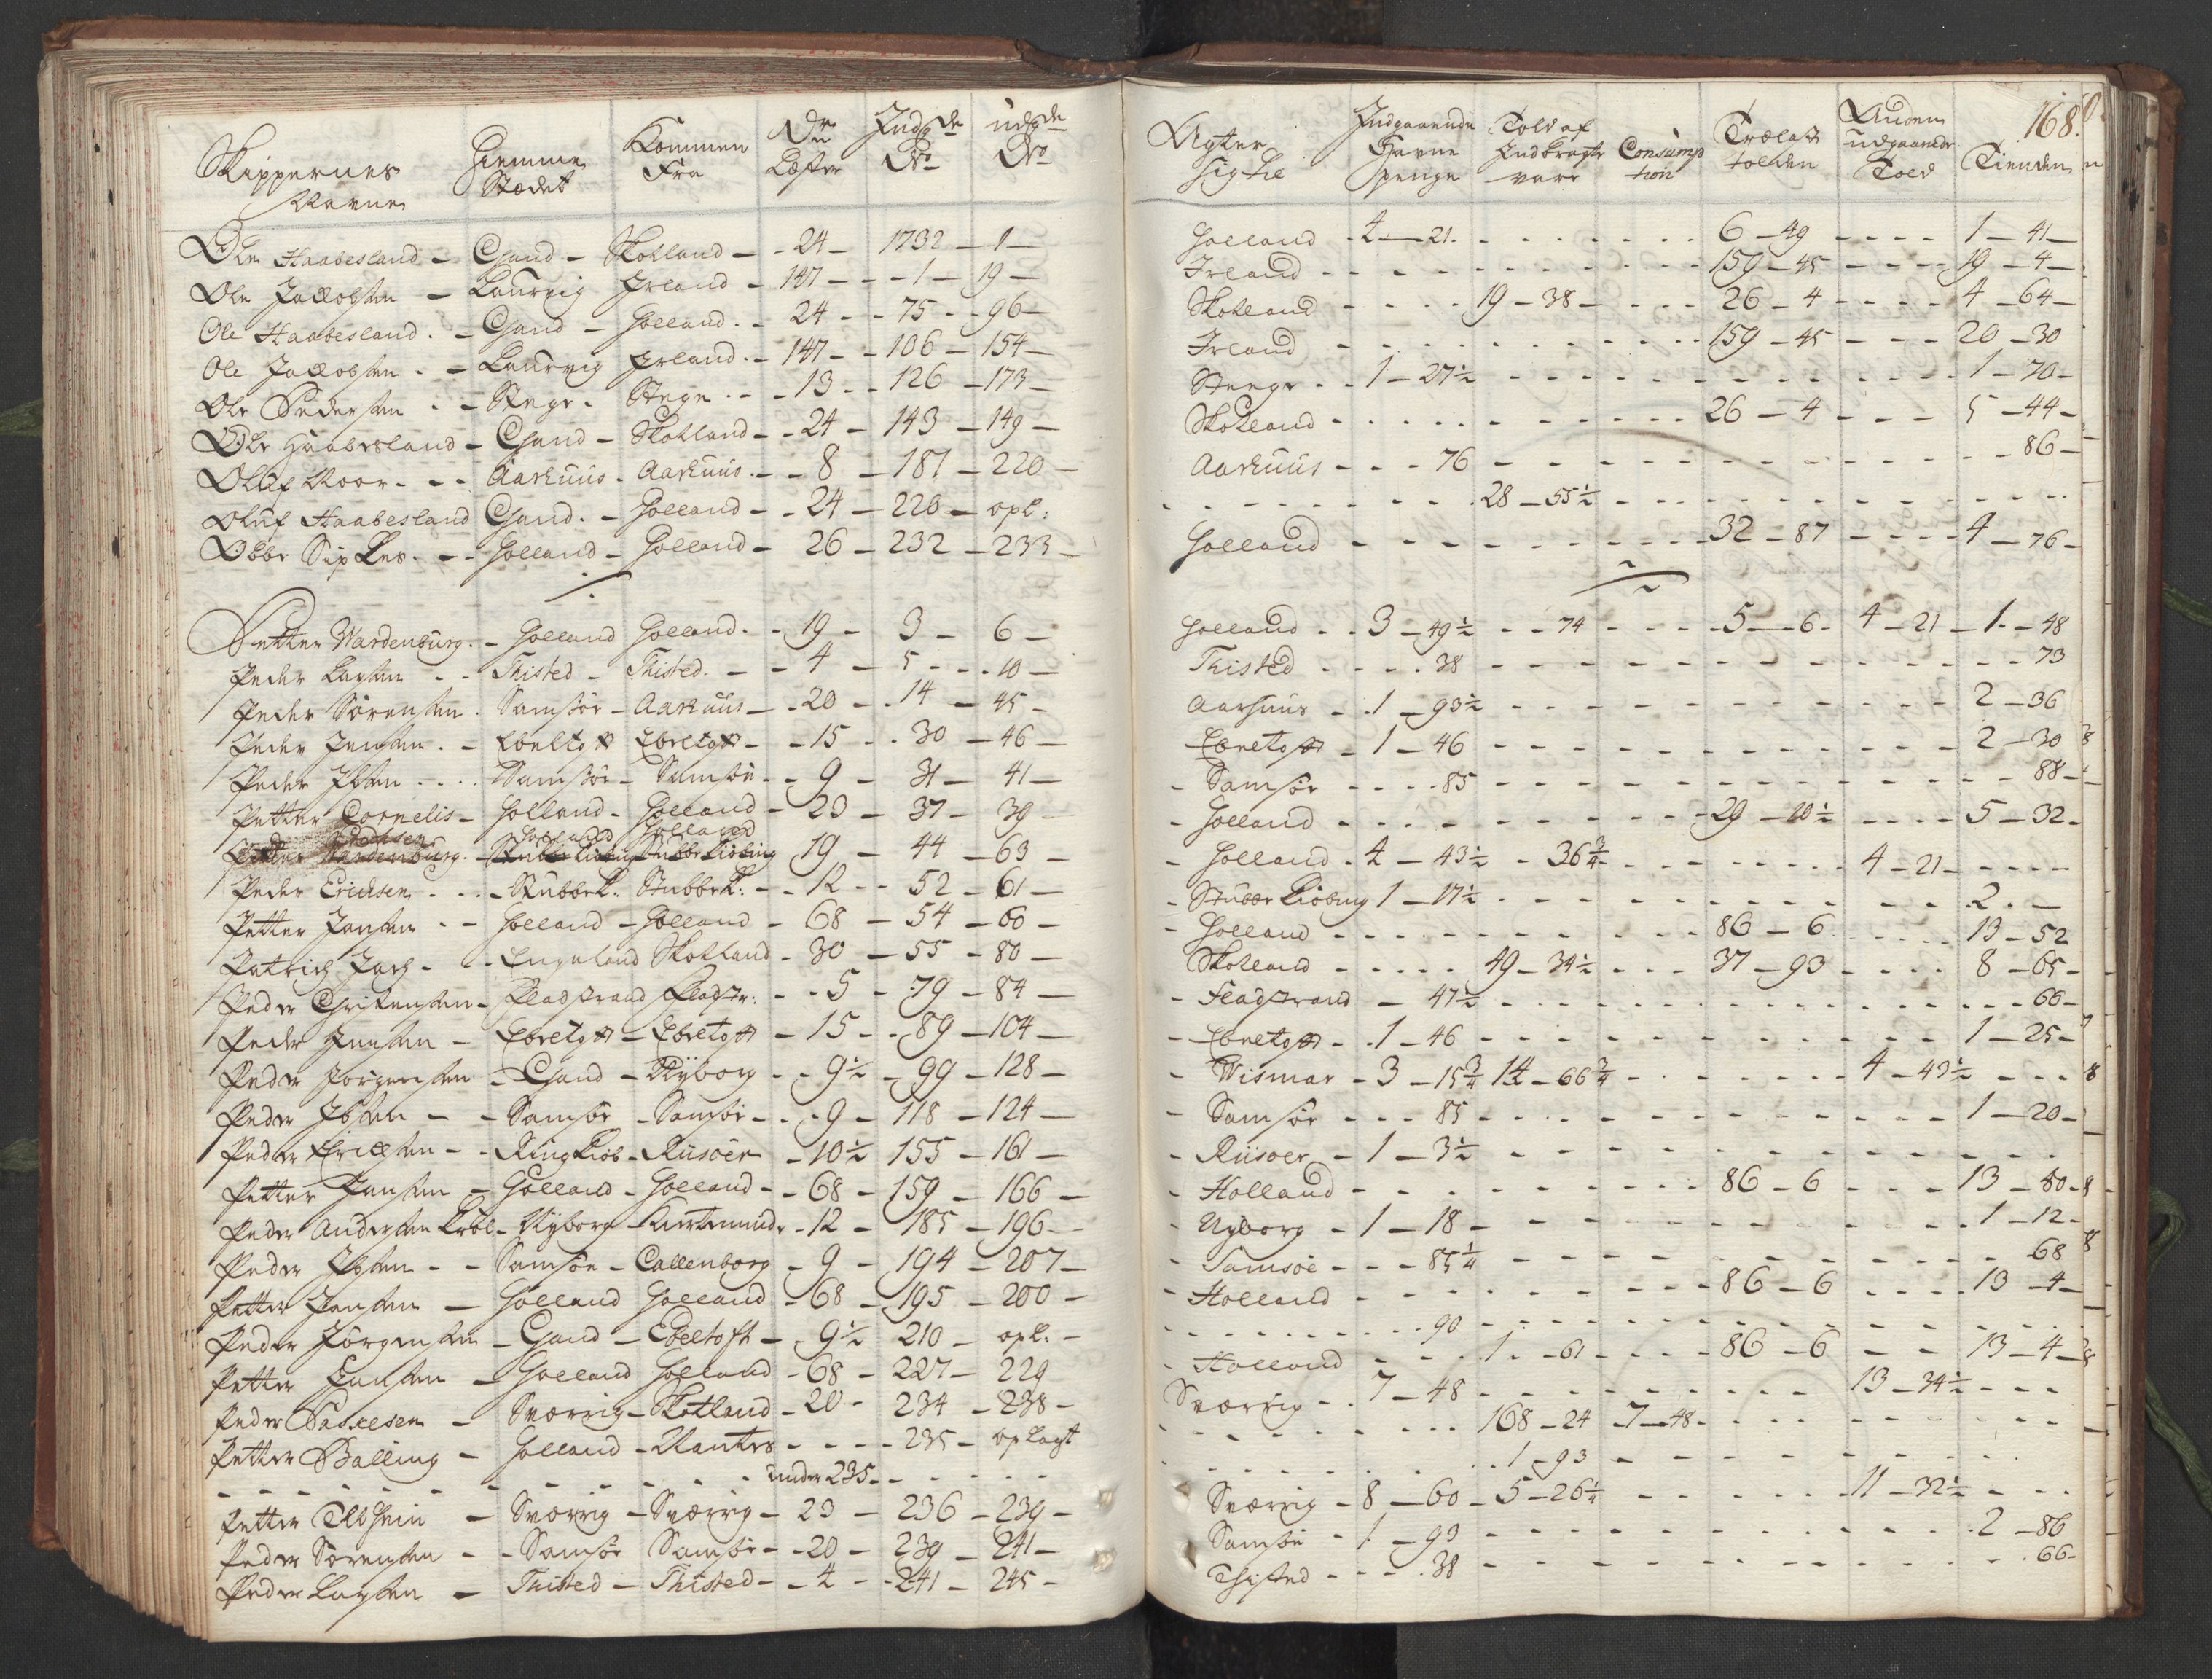 168.
Skippernes Navne | Hiemme Stædet | Kommen Fra | Dr: Læster | Indg de No | udg de No | Agter sig til | Indgaaende Havne penge | Told af Indbragte vare | Consumption | Trælast tolden | Anden udgaaende Told | Tienden
Ole Haabesland – Chand – Skotland – 24 – 1732 – 1 – Holland – 4 – 21 – 6 – 49 – 1 – 41
Ole Jacobsen – Laurvig – Irland – 147 – 1 – 19 – Irland – 159 – 45 – 19 – 4
Ole Haabesland – Chand – Holland – 24 – 75 – 96 – Skotland – 19 – 38 – 26 – 4 – 4 – 64
Ole Jacobsen – Laurvig – Irland – 147 – 106 – 154 – Irland – 159 – 45 – 20 – 30
Ole Pedersen – Stege – Stege – 13 – 126 – 173 – Stege – 1 – 27½ – 1 – 70
Ole Haabesland – Chand – Skotland – 24 – 143 – 149 – Skotland – 26 – 4 – 5 – 44
Oluf Roor – Aarhuus – Aarhuus – 8 – 187 – 220 – Aarhuus – 76 – 86
Oluf Haabesland – Chand – Holland – 24 – 220 – opl: – 28 – 55½
Obbe Sipkes – Holland – Holland – 26 – 232 – 233 – Holland – 32 – 87 – 4 – 76
Petter Wardenburg – Holland – Holland – 19 – 3 – 6 – Holland – 3 – 49½ – 74 – 5 – 6 – 4 – 21 – 1 – 48
Peder Laysen – Thisted – Thisted – 4 – 5 – 10 – Thisted – 38 – 73
Peder Sørensen – Samsøe – Aarhuus – 20 – 14 – 45 – Aarhuus – 1 – 93½ – 2 – 36
Peder Jensen – Ebeltoft – Ebeltoft – 15 – 30 – 46 – Ebeltoft – 1 – 46 – 2 – 30
Peder Ibsen – Samsøe – Samsøe – 9 – 31 – 41 – Samsøe – 85 – 88
Petter Cornelis – Holland – Holland – 23 – 37 – 39 – Holland – 29 – 10½ – 5 – 32
Petter Wardenburg – Holland – Holland – 19 – 44 – 63 – Holland – 4 – 43½ – 36¾ – 4 – 21
Peder Erichsen – Stubbek: – Stubbek: – 12 – 52 – 61 – Stubbe Kiøbing – 1 – 17½ – 2
Petter Jansen – Holland – Holland – 68 – 54 – 60 – Holland – 86 – 6 – 13 – 52
Patrich Jach – Engeland – Skotland – 30 – 55 – 80 – Skotland – 49 – 34½ – 37 – 93 – 8 – 65
Peder Christensen – Fladstrand – Fladstr: – 5 – 79 – 84 – Fladstrand – 47½ – 66
Peder Jensen – Ebeltoft – Ebeltoft – 15 – 89 – 104 – Ebeltoft – 1 – 46 – 1 – 25
Peder Jørgensen – Chand – Nyborg – 9½ – 99 – 128 – Wismar – 3 – 15¾ – 14 – 66¾ – 4 – 43½
Peder Ibsen – Samsøe – Samsøe – 9 – 118 – 124 – Samsøe – 85 – 1 – 20
Peder Ericksen – Ringkiøb – Riisøer – 10½ – 155 – 161 – Riisoer – 1 – 3½
Petter Jansen – Holland – Holland – 68 – 159 – 166 – Holland – 86 – 6 – 13 – 80
Peder Andersen – Nyborg – Kiertemunde – 12 – 185 – 196 – Nyborg – 1 – 18 – 1 – 12
Peder Ibsen – Samsøe – Callenborg – 9 – 194 – 207 – Samsøe – 85¼ – 68
Petter Jansen – Holland – Holland – 68 – 195 – 200 – Holland – 86 – 6 – 13 – 4
Peder Jørgensen – Chand – Ebeltoft – 9½ – 210 – opl. – 90
Petter Jansen – Holland – Holland – 68 – 227 – 229 – Holland – 1 – 61 – 86 – 6 – 13 – 4
Peder – Sværrig – Skotland – 20 – 234 – 238 – Sværrig – 7 – 48 – 13 – 34½
Petter Balling – Holland – Nantes – 235 – oplagt – 168 – 24 – 7 – 48
under 235 – 1 – 93
Petter – Sværrig – Sværrig – 23 – 236 – 239 – Sværrig – 8 – 60 – 5 – 26¼ – 11 – 32½
Peder Sørensen – Samsøe – Samsøe – 20 – 239 – 241 – Samsøe – 1 – 93 – 2 – 86
Peder Laysen – Thisted – Thisted – 4 – 241 – 245 – Thisted – 38 – 66